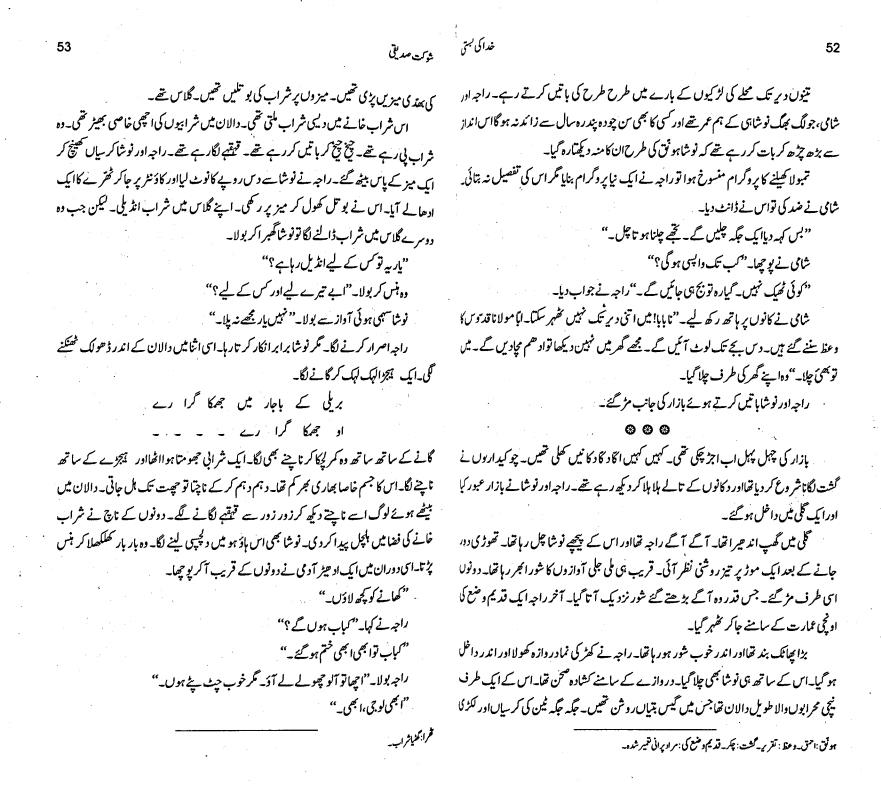 52
خدا کی بستی
تینوں دیر تک محلے کی لڑکیوں کے بارے میں طرح طرح کی باتیں کرتے رہے۔ راجہ اور
شامی، جو لگ بھگ نوشا ہی کے ہم عمر تھے اور کسی کا بھی سن چودہ پندرہ سال سے زائد نہ ہو گا اس انداز
سے بڑھ چڑھ کر بات کر رہے تھے کہ نوشا ہونق کی طرح ان کا منہ دیکھتا رہ گیا۔
تمبولا کھیلنے کا پروگرام منسوخ ہوا تو راجہ نے ایک نیا پروگرام بنایا مگر اس کی تفصیل نہ بتائی۔
شامی نے ضد کی تو اس نے ڈانٹ دیا۔
”بس کہہ دیا ایک جگہ چلیں گے۔ تجھے چلنا ہو تا چل۔“
شامی نے پوچھا۔ ”کب تک واپسی ہو گی؟“
”کوئی ٹھیک نہیں۔ گیارہ تو بج ہی جائیں گے۔“ راجہ نے جواب دیا۔
شامی نے کانوں پر ہاتھ رکھ لیے۔ ”نا بابا! میں اتنی دیر تک نہیں ٹھہر سکتا۔ ابا مولانا قدوس کا
وعظ سننے گئے ہیں۔ دس بجے تک لوٹ آئیں گے۔ مجھے گھر میں نہیں دیکھا تو ادھم مچا دیں گے۔ میں
تو بھئی چلا۔“ وہ اپنے گھر کی طرف چلا گیا۔
راجہ اور نوشا باتیں کرتے ہوئے بازار کی جانب مڑ گئے۔
بازار کی چہل پہل اب اجڑ چکی تھی۔ کہیں کہیں اکا دکا دکانیں کھلی تھیں۔ چوکیداروں نے
گشت لگانا شروع کر دیا تھا اور دکانوں کے تالے ہلا ہلا کر دیکھ رہے تھے۔ راجہ اور نوشا نے بازار عبور کیا
اور ایک گلی میں داخل ہو گئے۔
گلی میں گھپ اندھیرا تھا۔ آگے آگے راجہ تھا اور اس کے پیچھے نوشا چل رہا تھا۔ تھوڑی دور
جانے کے بعد ایک موڑ پر تیز روشنی نظر آئی۔ قریب ہی ملی جلی آوازوں کا شور ابھر رہا تھا۔ دونوں
اسی طرف مڑ گئے۔ جس قدر وہ آگے بڑھتے گئے شور نزدیک آتا گیا۔ آخر راجہ ایک قدیم وضع کی
اونچی عمارت کے سامنے جا کر ٹھہر گیا۔
بڑا پھاٹک بند تھا اور اندر خوب شور ہو رہا تھا۔ راجہ نے کھڑکی نما دروازہ کھولا اور اندر داخل
ہو گیا۔ اس کے ساتھ ہی نوشا بھی چلا گیا۔ دروازے کے سامنے کشادہ صحن تھا۔ اس کے ایک طرف
نیچی محرابوں والا طویل دالان تھا جس میں گیس بتیاں روشن تھیں۔ جگہ جگہ ٹین کی کرسیاں اور لکڑی
ہونق: احمق۔ وعظ: تقریر۔ گشت: چکر۔ قدیم وضع کی: مراد پرانی تعمیر شدہ۔
شوکت صدیقی
53
کی بھدی میزیں پڑی تھیں۔ میزوں پر شراب کی بوتلیں تھیں۔ گلاس تھے۔
اس شراب خانے میں دیسی شراب ملتی تھی۔ دالان میں شرابیوں کی اچھی خاصی بھیڑ تھی۔ وہ
شراب پی رہے تھے۔ چیخ چیخ کر باتیں کر رہے تھے۔ قہقہے لگا رہے تھے۔ راجہ اور نوشا کرسیاں کھینچ کر
ایک میز کے پاس بیٹھ گئے۔ راجہ نے نوشا سے دس روپے کا نوٹ لیا اور کاؤنٹر پر جا کر ٹھرّے کا ایک
ادھا لے آیا۔ اس نے بوتل کھول کر میز پر رکھی۔ اپنے گلاس میں شراب انڈیلی۔ لیکن جب وہ
دوسرے گلاس میں شراب ڈالنے لگا تو نوشا گھبرا کر بولا۔
”یار یہ تو کس کے لیے انڈیل رہا ہے؟“
وہ ہنس کر بولا۔ ”ابے تیرے لیے اور کس کے لیے؟“
نوشا سہمی ہوئی آواز سے بولا۔ ”نہیں یار مجھے نہ پلا۔“
راجہ اصرار کرنے لگا۔ مگر نوشا برابر انکار کرتا رہا۔ اسی اثنا میں دالان کے اندر ڈھولک ٹھنکنے
لگی۔ ایک ہیجڑا لہک لہک کر گانے لگا۔
بریلی کے باجار میں جھمکا گرا رے
او جھمکا گرا رے ۔ ۔ ۔ ۔ ۔
گانے کے ساتھ ساتھ وہ کمر لچکا کر ناچنے بھی لگا۔ ایک شرابی جھومتا ہوا اٹھا اور ہیجڑے کے ساتھ
ناچنے لگا۔ اس کا جسم خاصا بھاری بھر کم تھا۔ دھم دھم کر کے ناچتا تو چھت تک ہل جاتی۔ دالان میں
بیٹھے ہوئے لوگ اسے ناچتے دیکھ کر زور زور سے قہقہے لگانے لگے۔ دونوں کے ناچ نے شراب
خانے کی فضا میں ہلچل پیدا کر دی۔ نوشا بھی اس ہاؤ ہو میں دلچسپی لینے لگا۔ وہ بار بار کھلکھلا کر ہنس
پڑتا۔ اسی دوران میں ایک ادھیڑ آدمی نے دونوں کے قریب آ کر پوچھا۔
”کھانے کو کچھ لاؤں۔“
راجہ نے کہا۔ ”کباب ہوں گے؟“
”کباب تو ابھی ابھی ختم ہو گئے۔“
راجہ بولا۔ ”اچھا تو آلو چھولے لے آؤ۔ مگر خوب چٹ پٹے ہوں۔“
”ابھی لو جی، ابھی۔“
ٹھرا: گھٹیا شراب۔